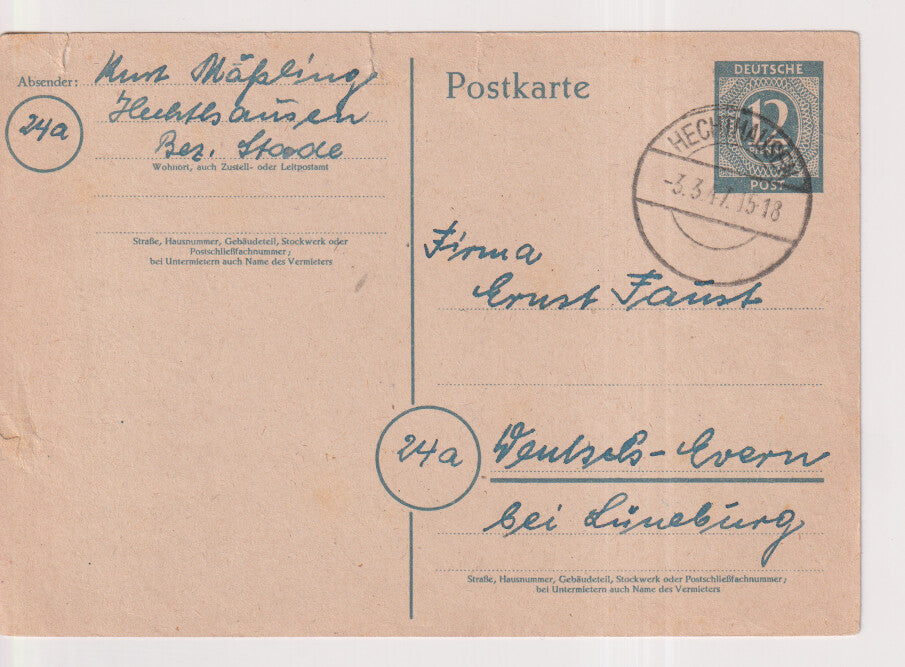 Absender: Kurt Mäßling
24a
Hechthausen
Bez. Stade
Wohnort, auch Zustell- oder Leitpostamt
Straße, Hausnummer, Gebäudeteil, Stockwerk oder
Postschließfachnummer;
bei Untermietern auch Name des Vermieters
Postkarte
DEUTSCHE
12
POST
HECHTHAUSEN
-3.3.47.15-18
Firma
Ernst Faust
24a
Deutsch-Evern
bei Lüneburg
Straße, Hausnummer, Gebäudeteil, Stockwerk oder Postschließfachnummer;
bei Untermietern auch Name des Vermieters